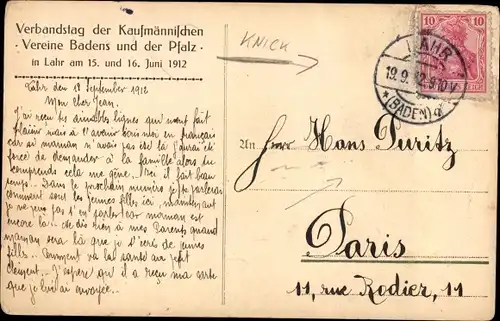 Verbandstag der Kaufmännischen
· Vereine Badens und der Pfalz ·
in Lahr am 15. und 16. Juni 1912
KNICK
10 10
LAHR
19.9.12.9-10V
*(BADEN)a
Lahr den 18 September 1912
Mon cher Jean.
J'ai reçu tes aimables lignes qui m'ont fait
plaisir mais à t'avenir écris moi en français
car si maman n'avais pas été là j'aurai été
forcé de demander à la famille alors tu
comprends cela me gêne... Ici il fait beau
temps... Dans le prochain numéro je te parlerai
comment sont les jeunes filles ici, maintenant
je ne veux pas t'en parler car maman est
encore là... ne dis rien à mes Parents quand
maman sera là que je t'écris de jeunes
filles... Comment va la santé au petit
Clément... J'espère qu'il a reçu ma carte
que je lui ai envoyée...
An Herrn Hans Puritz
Paris
11, rue Rodier, 11